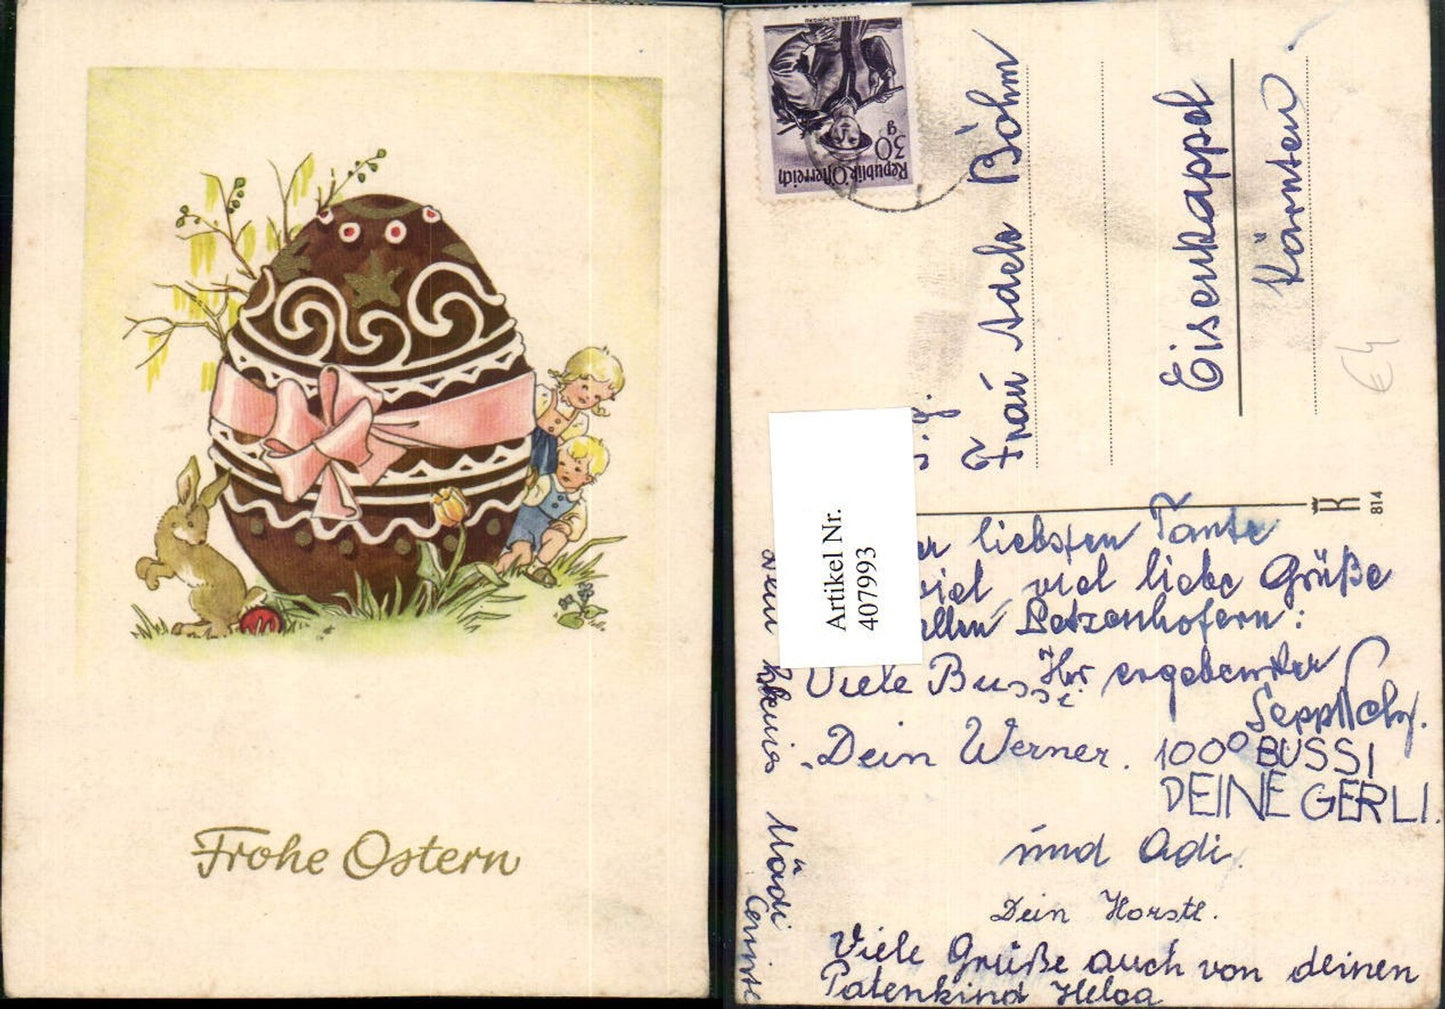 Frohe Ostern
Republik Österreich
30 g
Frau Adele Böhm
Eisenkappel
Kärnten
€4
814
Artikel Nr.
407993
liebsten Tante
viel viel liebe Grüße
allen Retzenhofern:
Viele Bussi. Ihr ergebenster
Dein Werner. 1000 BUSSI
DEINE GERLI.
und Adi.
Dein Horstl.
Viele Grüße auch von deinen
Patenkind Helga
Dein kleines Mädi